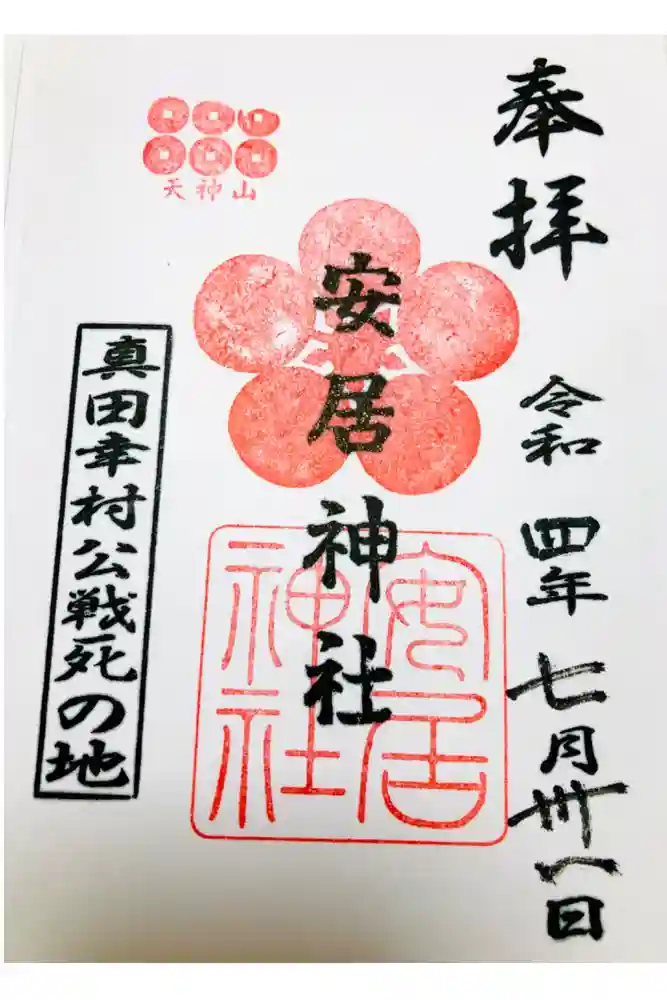 奉拝
令和四年七月卅一日
安居神社
安居
神社
天神山
真田幸村公戦死の地